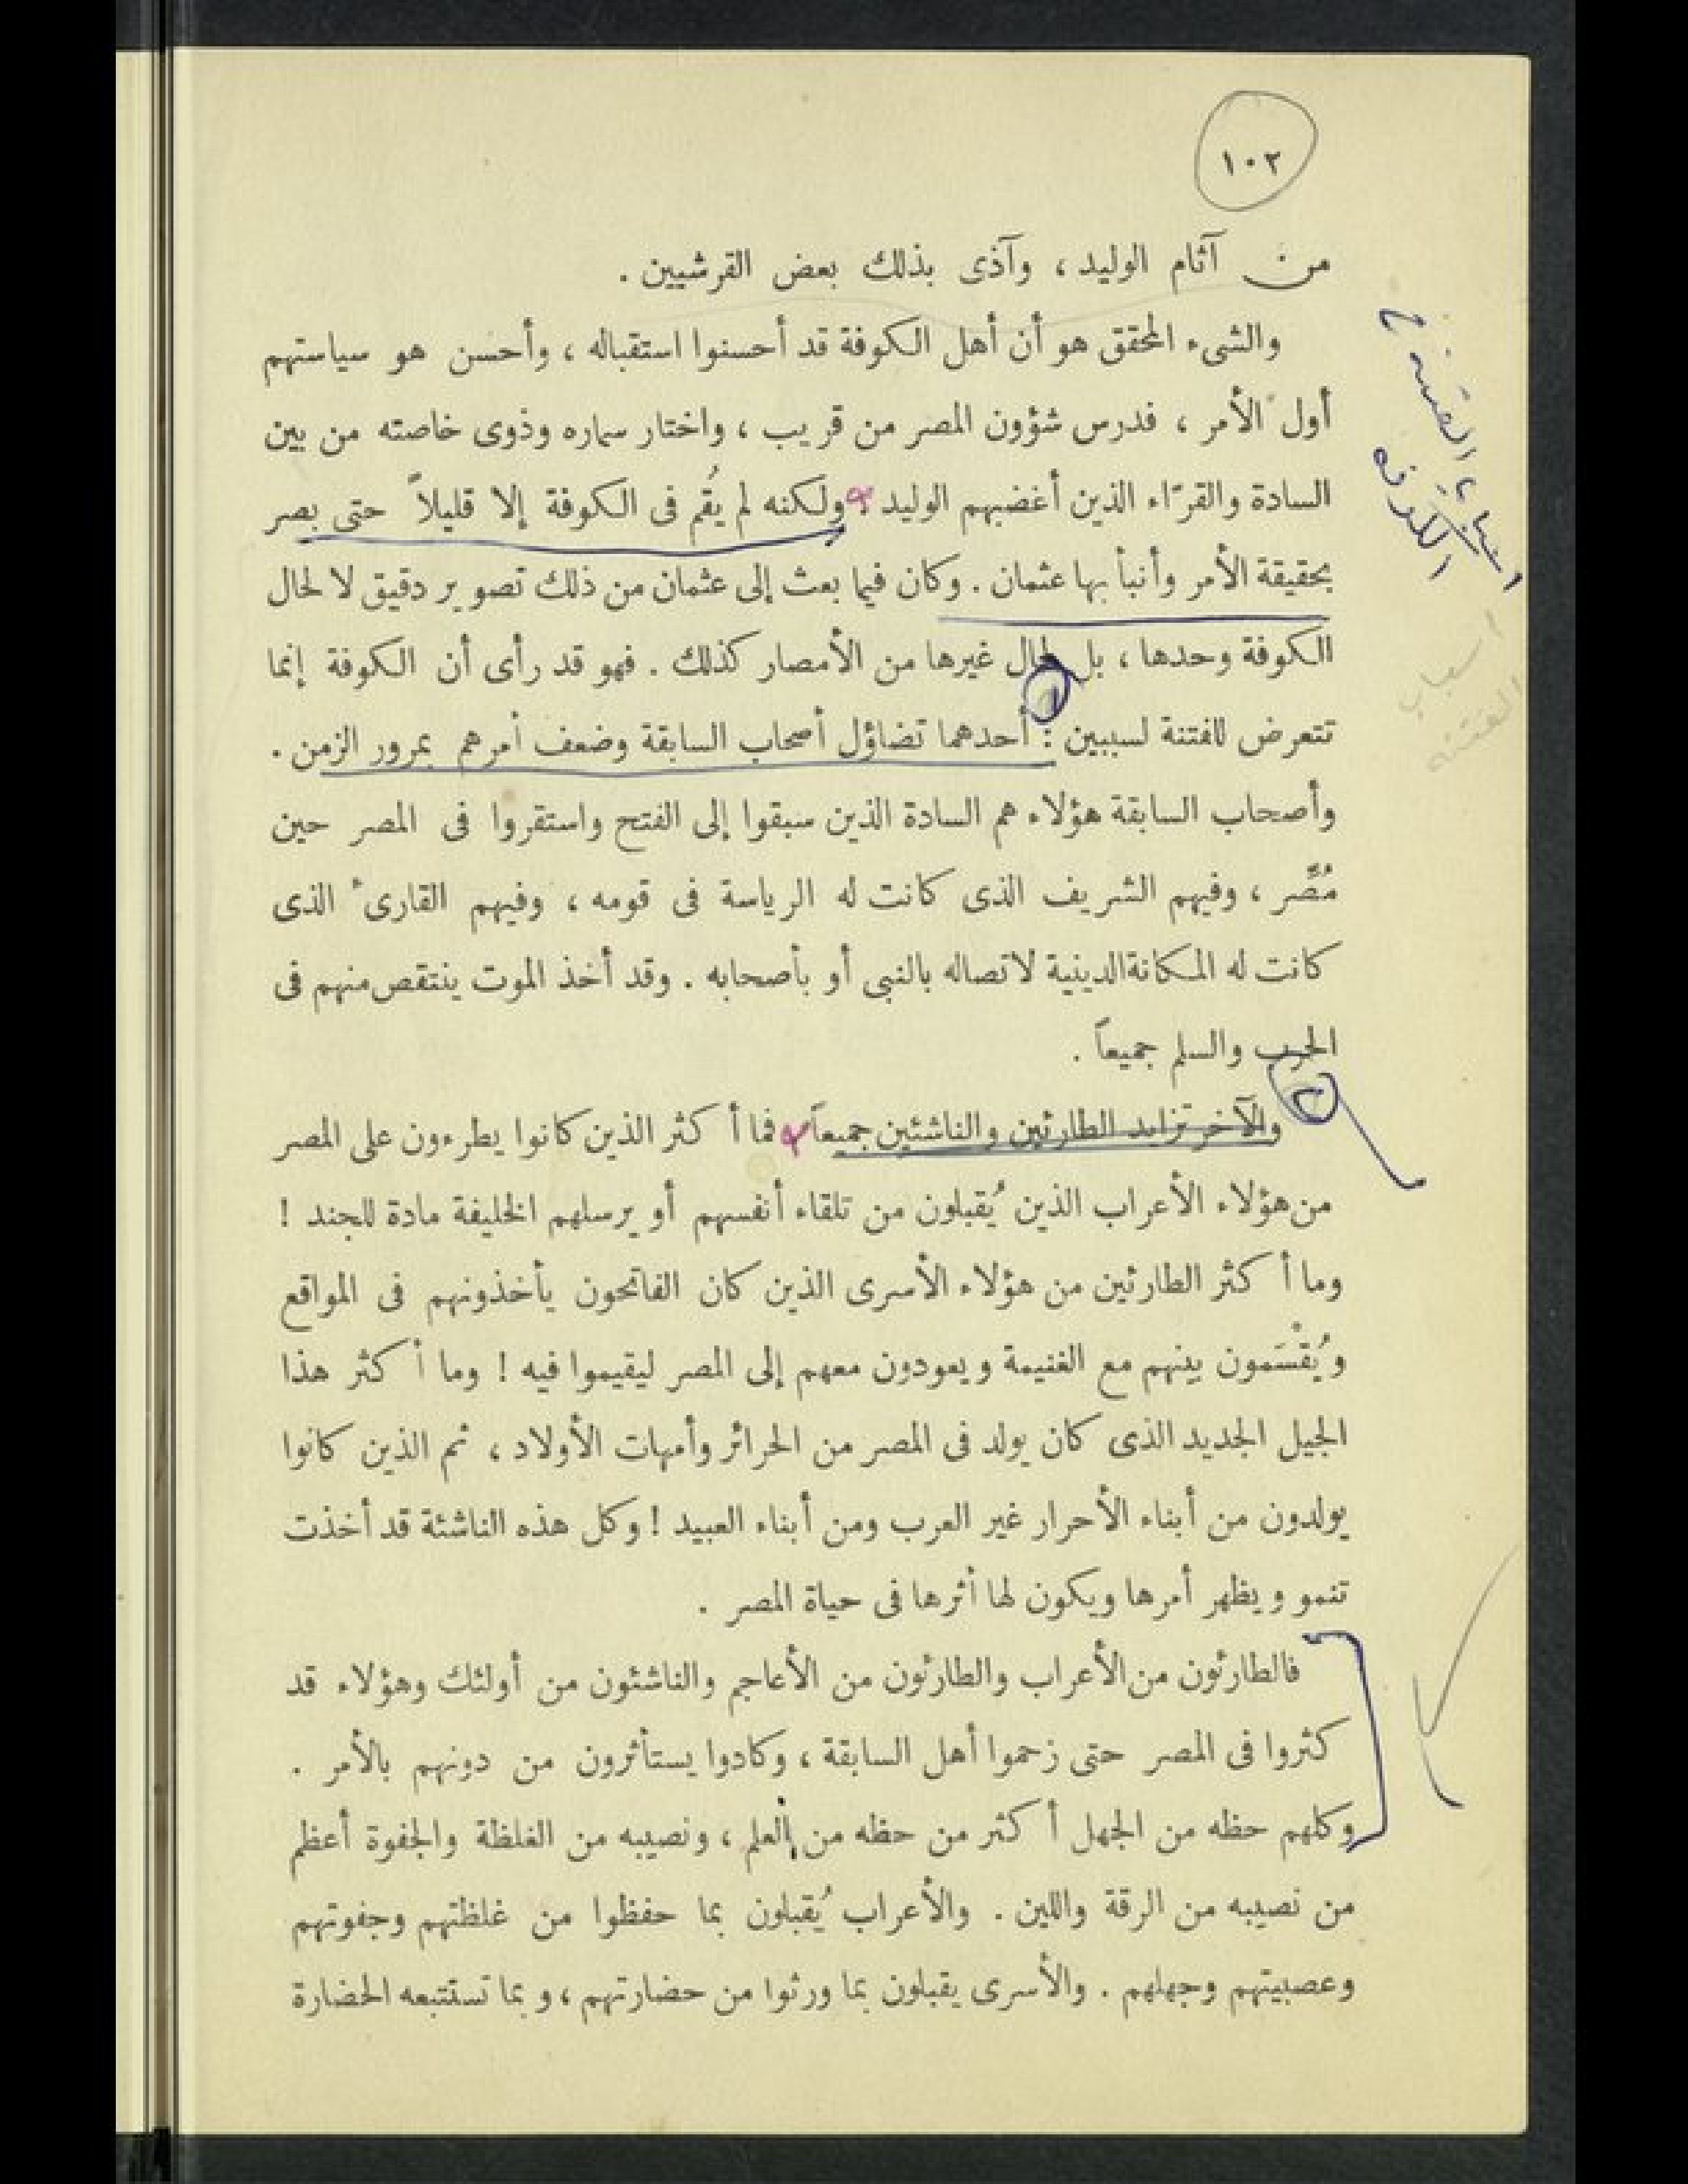 ١٠٢
من آثام الوليد ، وآذى بذلك بعض القرشيين .
والشىء المحقق هو أن أهل الكوفة قد أحسنوا استقباله ، وأحسن هو سياستهم
أول الأمر ، فدرس شؤون المصر من قريب ، واختار سماره وذوى خاصته من بين
السادة والقرّاء الذين أغضبهم الوليد . ولكنه لم يُقم فى الكوفة إلا قليلاً حتى بصر
بحقيقة الأمر وأنبأ بها عثمان . وكان فيما بعث إلى عثمان من ذلك تصوير دقيق لا لحال
الكوفة وحدها ، بل لحال غيرها من الأمصار كذلك . فهو قد رأى أن الكوفة إنما
تتعرض للفتنة لسببين : أحدهما تضاؤل أصحاب السابقة وضعف أمرهم بمرور الزمن .
وأصحاب السابقة هؤلاء هم السادة الذين سبقوا إلى الفتح واستقروا فى المصر حين
مُصِّر ، وفيهم الشريف الذى كانت له الرياسة فى قومه ، وفيهم القارئ الذى
كانت له المكانة الدينية لاتصاله بالنبى أو بأصحابه . وقد أخذ الموت ينتقص منهم فى
الحرب والسلم جميعاً .
والآخر تزايد الطارئين والناشئين جميعاً فما أكثر الذين كانوا يطرءون على المصر
من هؤلاء الأعراب الذين يُقبلون من تلقاء أنفسهم أو يرسلهم الخليفة مادة للجند !
وما أكثر الطارئين من هؤلاء الأسرى الذين كان الفاتحون يأخذونهم فى المواقع
ويُقْسَمون بينهم مع الغنيمة ويعودون معهم إلى المصر ليقيموا فيه ! وما أكثر هذا
الجيل الجديد الذى كان يولد فى المصر من الحرائر وأمهات الأولاد ، ثم الذين كانوا
يولدون من أبناء الأحرار غير العرب ومن أبناء العبيد ! وكل هذه الناشئة قد أخذت
تنمو ويظهر أمرها ويكون لها أثرها فى حياة المصر .
فالطارئون من الأعراب والطارئون من الأعاجم والناشئون من أولئك وهؤلاء قد
كثروا فى المصر حتى زحموا أهل السابقة ، وكادوا يستأثرون من دونهم بالأمر .
وكلهم حظه من الجهل أكثر من حظه من العلم ، ونصيبه من الغلظة والجفوة أعظم
من نصيبه من الرقة واللين . والأعراب يُقبلون بما حفظوا من غلظتهم وجفوتهم
وعصبيتهم وجهلهم . والأسرى يقبلون بما ورثوا من حضارتهم ، وبما تستتبعه الحضارة
أسباب الفتنة
الكوفة
أسباب
الفتنة